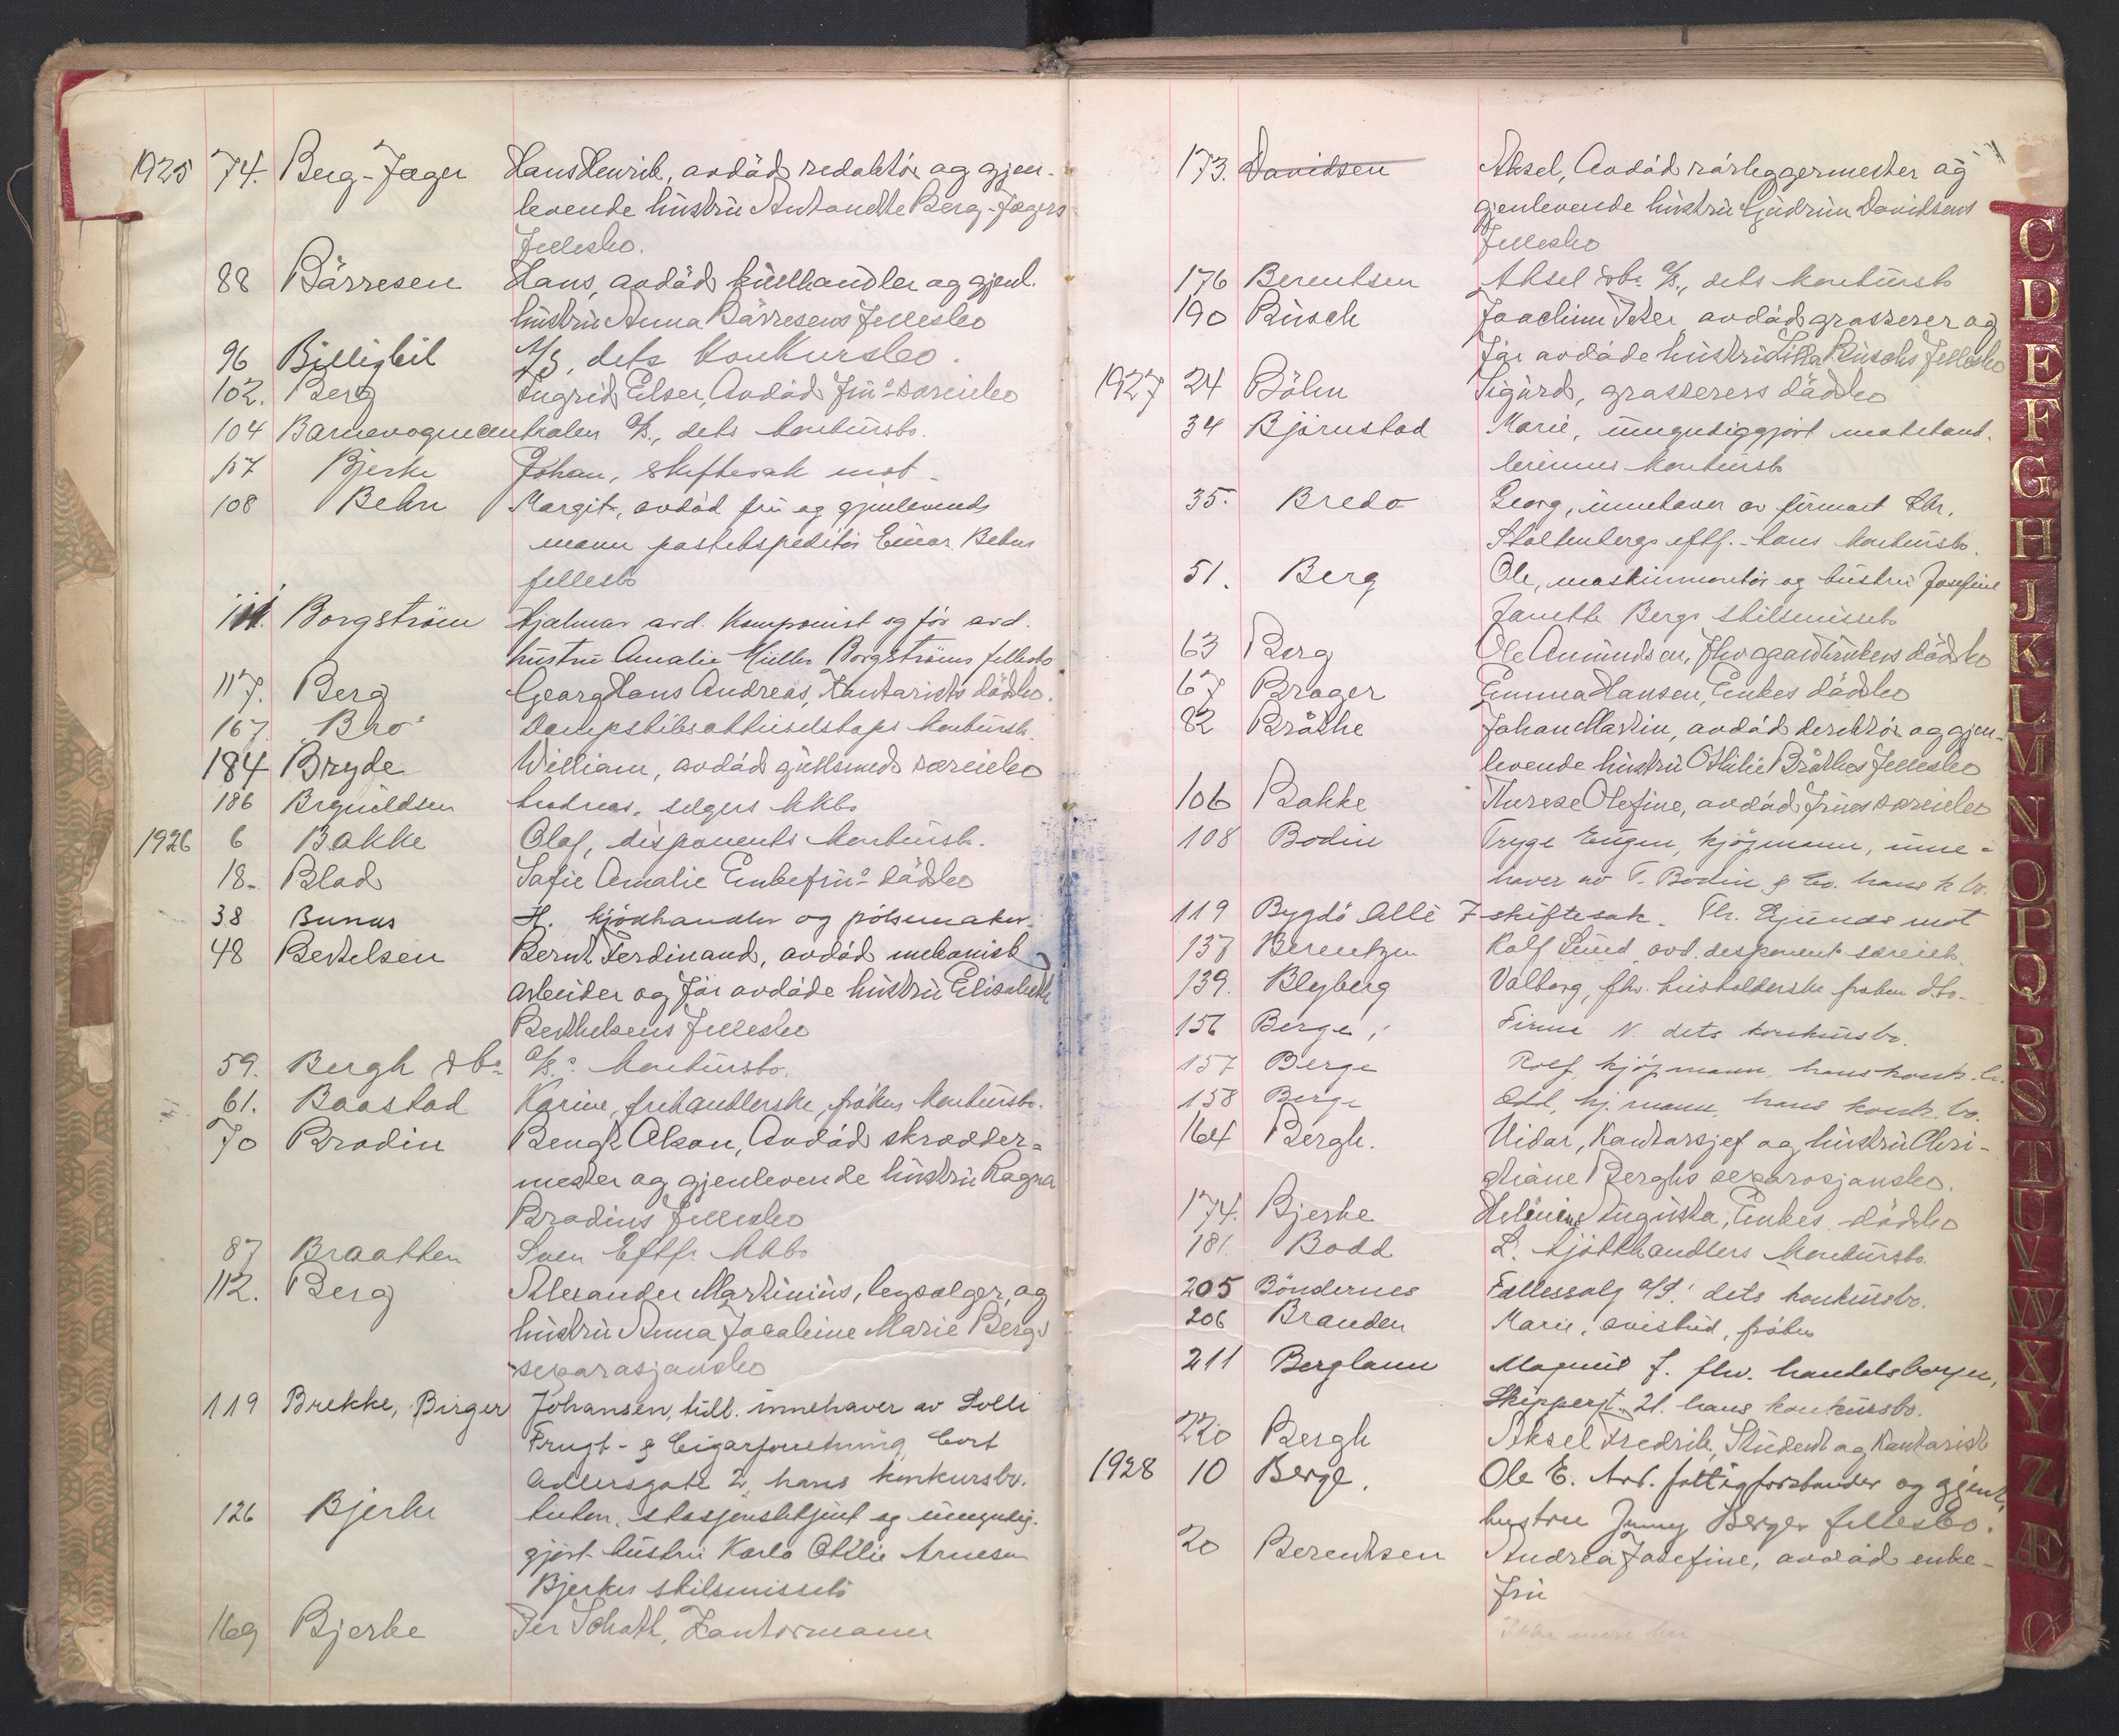 1925 74. Berg-Jæger Hans Henrik, avdöd redaktör og gjen-
levende hustru Antonette Berg-Jægers
fellesbo.
88 Börresen Hans, avdöd kullhandler og gjenl.
hustru Anna Börresens fellesbo
96 Billigbil A/S, dets konkursbo.
102. Berg Ingrid Elser, Avdöd frus særeiebo
104 Barnevogncentralen A/S., dets konkursbo.
107 Bjerke Johan, skiftesak mot
108 Behn Margit, avdöd fru og gjenlevende
mann postekspeditör Einar Behns
fellesbo
111. Borgström Hjalmar avd. Komponist og för avd.
hustru Amalie Müller Borgströms fellesbo
117. Berg Georg Hans Andreas, Kontorists dödsbo.
167. "Bro" Dampskibsaktieselskaps konkursb.
184 Bryde William, avdöd gullsmeds særeiebo
186 Brynildsen Andreas, selgers kkbo
1926 6 Bakke Olaf, disponents konkursb.
18. Blad Sofie Amalie Enkefrus dödsbo
38 Bunæs H. kjödhandler og pölsemaker.
48 Bertelsen Bernt Ferdinand, avdöd mekanisk
arbeider og för avdöde hustru Elisabeth
Berthelsens fellesbo
59. Bergh & Co A/S.s konkursbo.
61. Baastad Karine, frihandlerske, fröken konkursbo.
70 Brodin Bengt Olson, Avdöd skrædder-
mester og gjenlevende hustru Ragna
Brodins fellesbo
87 Braathen Sven Eftf. kkbo
112. Berg Alexander Martinius, legpolger, og
hustru Anna Jocobine Marie Bergs
separasjonsbo
119 Brekke, Birger Johansen, tidl. innehaver av Solli
Frugt- & Cigarforretning, Cort
Adlersgate 2, hans konkursbo.
126 Bjerke Anton, stasjonsbetjent og umyndig-
gjort hustru Karla Otilie Arnesen
Bjerkes skilsmissebo
169 Bjerke Per Schøth, Kontormann
173. Davidsen Aksel, Avdöd rörleggermester og
gjenlevende hustru Gudrun Davidsens
fellesbo
176 Berentsen Aksel & Co A/S., dets konkursb
190 Busch Joachim Peter avdöd grosserer og
för avdöde hustru Lilla Buschs fellesbo
1927 24 Böhn Sigurd, grosserers dödsbo
34 Björnstad Marie, umyndiggjort motehand-
lerinnes konkursb
35. Bredo Georg, innehaver av firmaet Chr.
Stoltenbergs eftf. hans konkursbo.
51. Berg Ole, maskinmontör og hustru Josefine
Janette Bergs skilsmissebo
63 Berg Ole Amundsen, fhv. gaardbrukers dödsbo
67 Brager Emma Hansen, Enkes dödsbo
82 Bråthe Johan Martin, avdöd direktör og gjen-
levende hustru Othilie Bråthes fellesbo
106 Bakke Therese Olefine, avdöd frues særeiebo
108 Bodin Tryge Eugen, kjöpmann, inne-
haver av T. Bodin & Co. hans k.bo.
119 Bygdö Allé 7 skiftesak. Th. Ejunds mot
137 Berentzen Rolf Lund avd. disponent særeieb.
139. Blyberg Valborg, fhv. husholderske fröken d.bo.
156 Berge, Firma N. dets konkursbo.
157 Berge Rolf, kjöpmann, hans konk. bo.
158 Berge Odd, kj. mann, hans konk. bo.
164 Bergh. Vidar, Kontorsjef og hustru Chri-
stiane Berghs separasjonsbo.
174. Bjerke Helene Augusta, Enkes dödsbo
181. Bodd L. kjötthandlers konkursbo.
205 Böndernes Fællessalg A/S. dets konkursbo.
206 Branden Marie, avistid, fröken
211 Berglann Magnus J. fhv. handelsborger,
Skippergt. 21. hans konkursbo.
220 Bergh Aksel Fredrik, Student og Kontorist
1928 10 Berge. Ole E. Avd. fattigforstander og gjenl.
hustru Jenny Berges fellesbo.
20 Berentsen Andrea Josefine, avdöd enke-
fru
Ikke mere her
C
D
E
F
G
H
J
K
L
M
N
O
P
Q
R
S
T
U
V
W
X
Y
Z
Æ
Ø